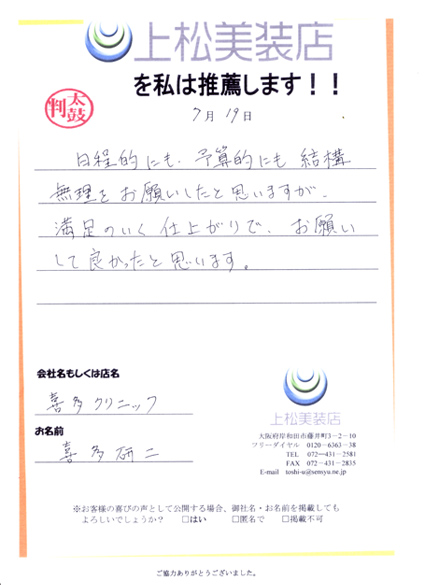 上松美装店
を私は推薦します！！
太鼓判
7月 19日
日程的にも、予算的にも 結構
無理をお願いしたと思いますが、
満足のいく 仕上がりで、お願い
して良かったと思います。
会社名もしくは店名
喜多クリニック
お名前
喜多研二
上松美装店
大阪府岸和田市藤井町3－2－10
フリーダイヤル 0120－6363－38
TEL 072―431－2581
FAX 072－431－2835
E-mail toshi-u@sensyu.ne.jp
※お客様の喜びの声として公開する場合、御社名・お名前を掲載しても
よろしいでしょうか？ □はい □匿名で □掲載不可
ご協力ありがとうございました。